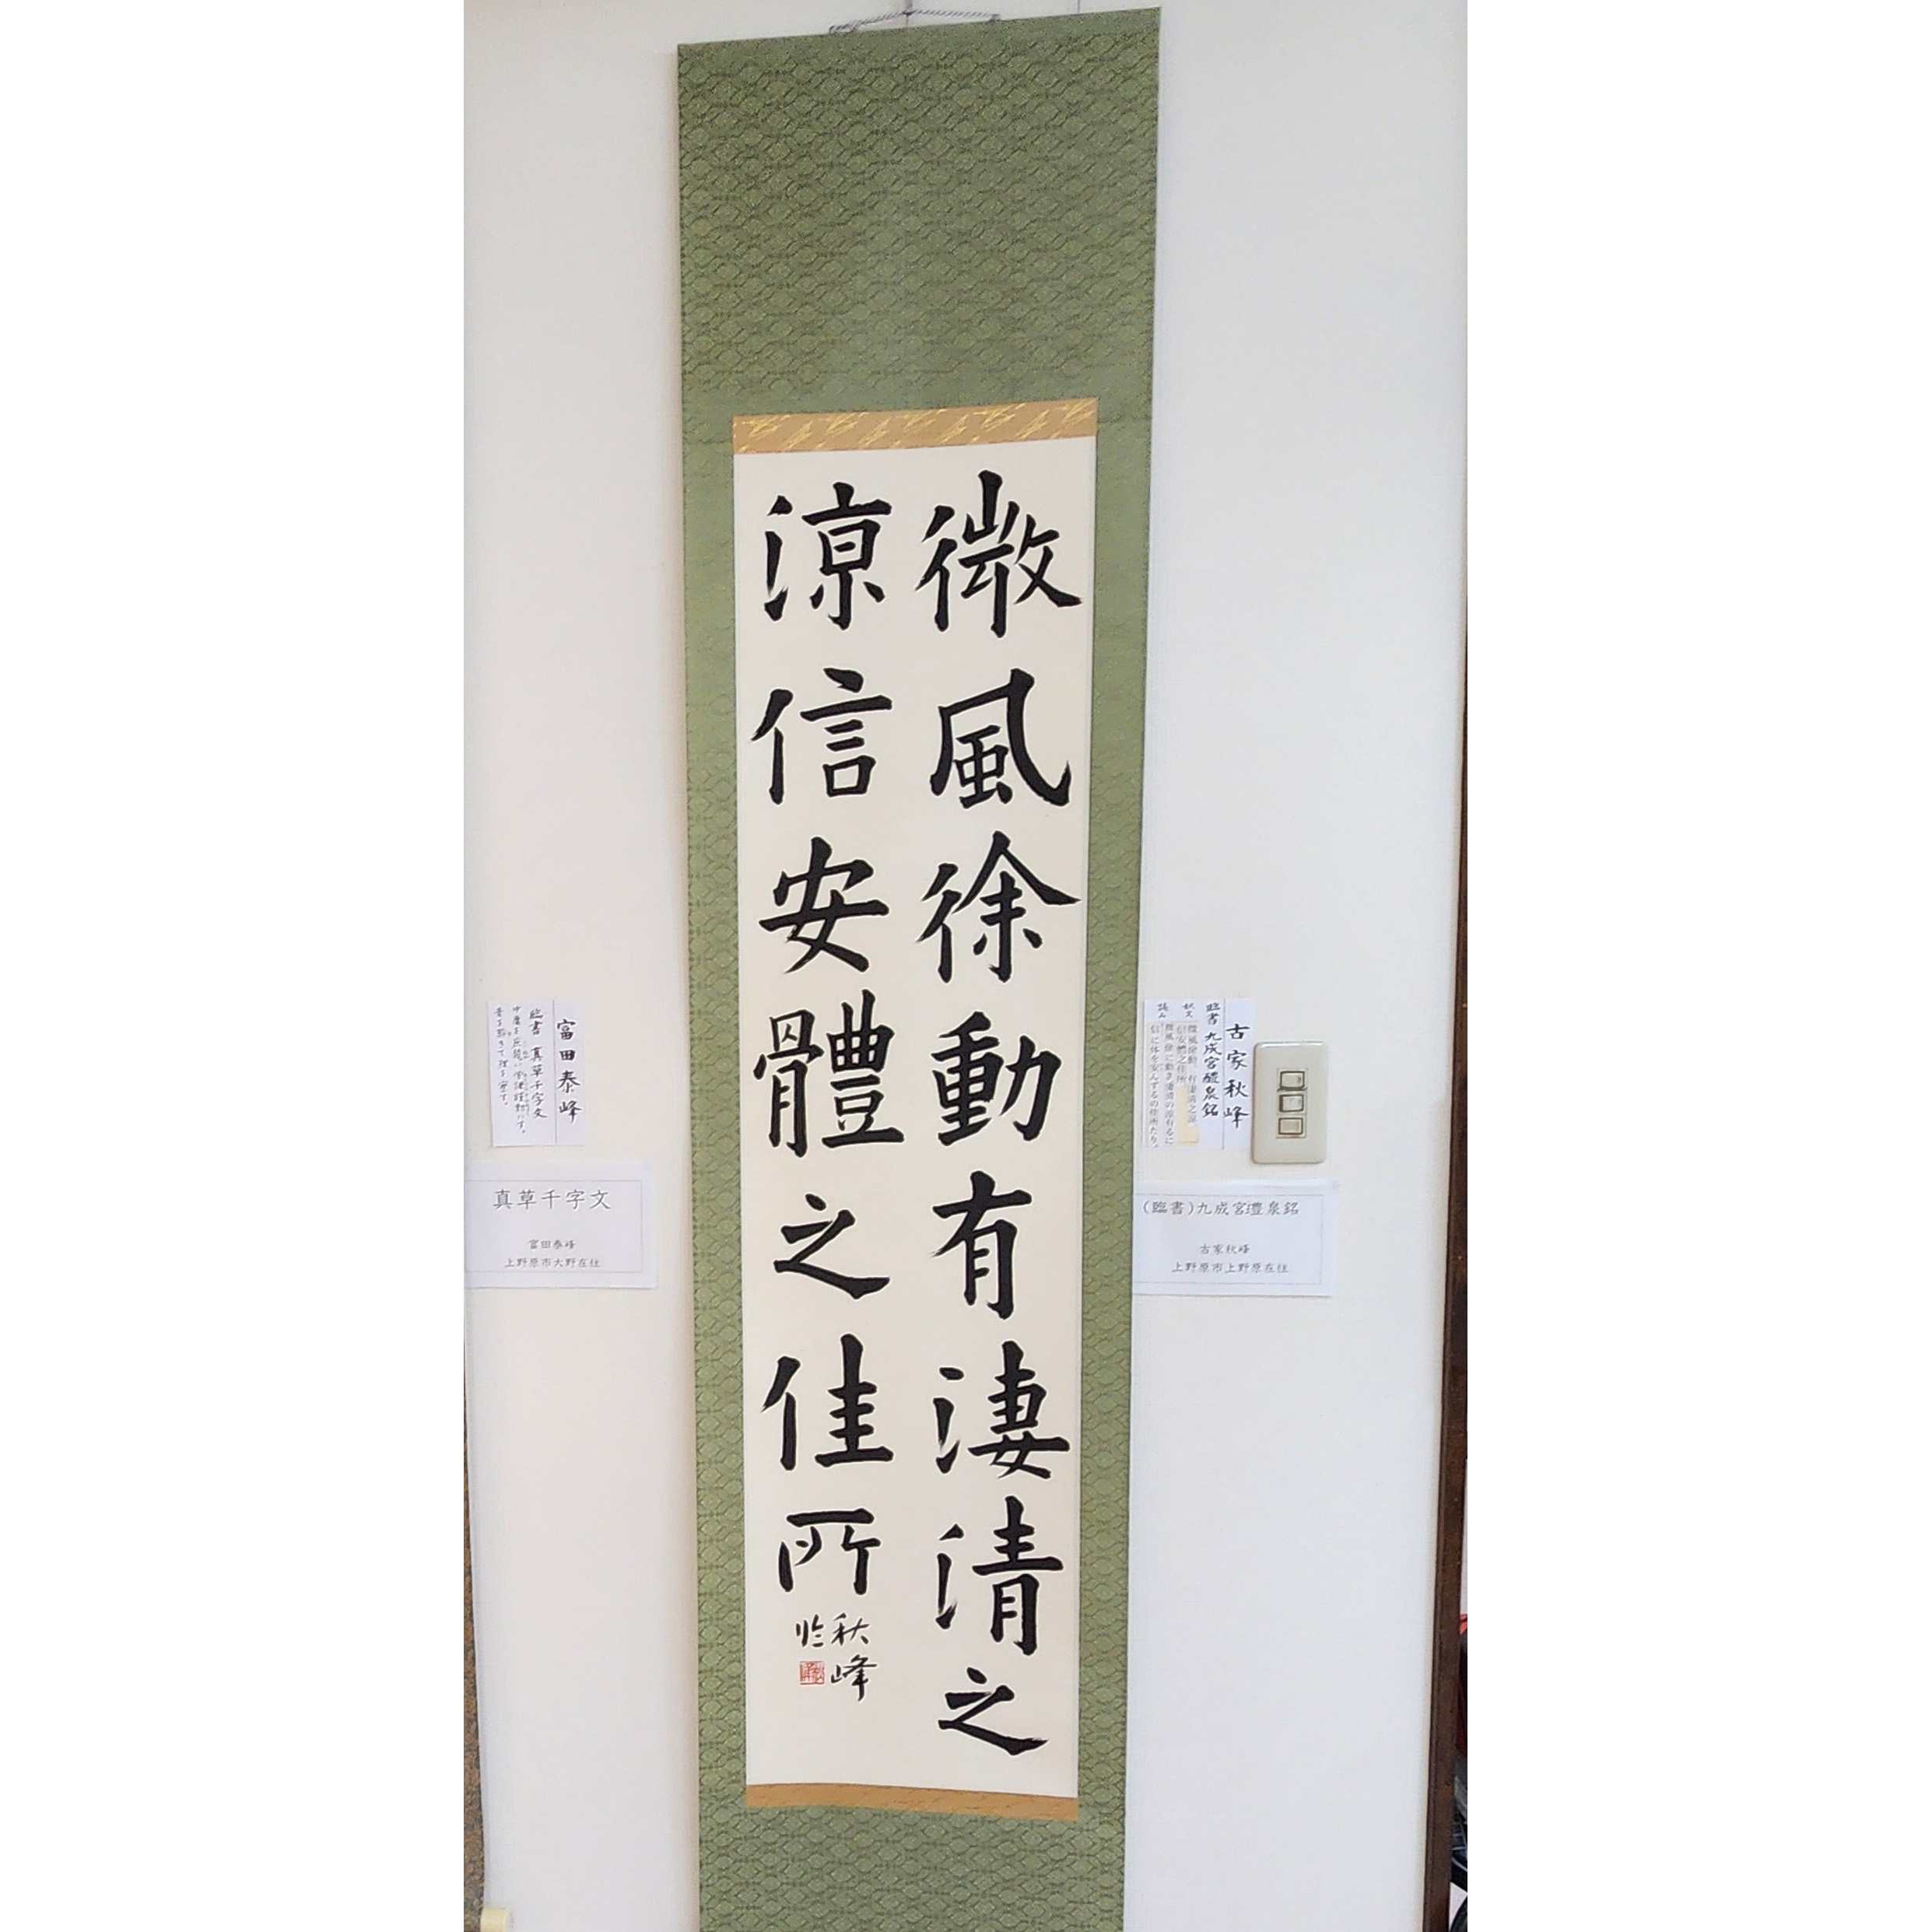 微風徐動有淒清之
涼信安體之佳所
秋峰
臨
古家秋峰
臨書 九成宮醴泉銘
釈文
微風徐動、有淒清之涼
信安體之佳所
読み
微風徐に動き淒清の涼有るに
信に体を安んずるの佳所たり。
(臨書)九成宮醴泉銘
古家秋峰
上野原市上野原在住
富田泰峰
臨書 真草千字文
真草千字文
富田泰峰
上野原市大野在住